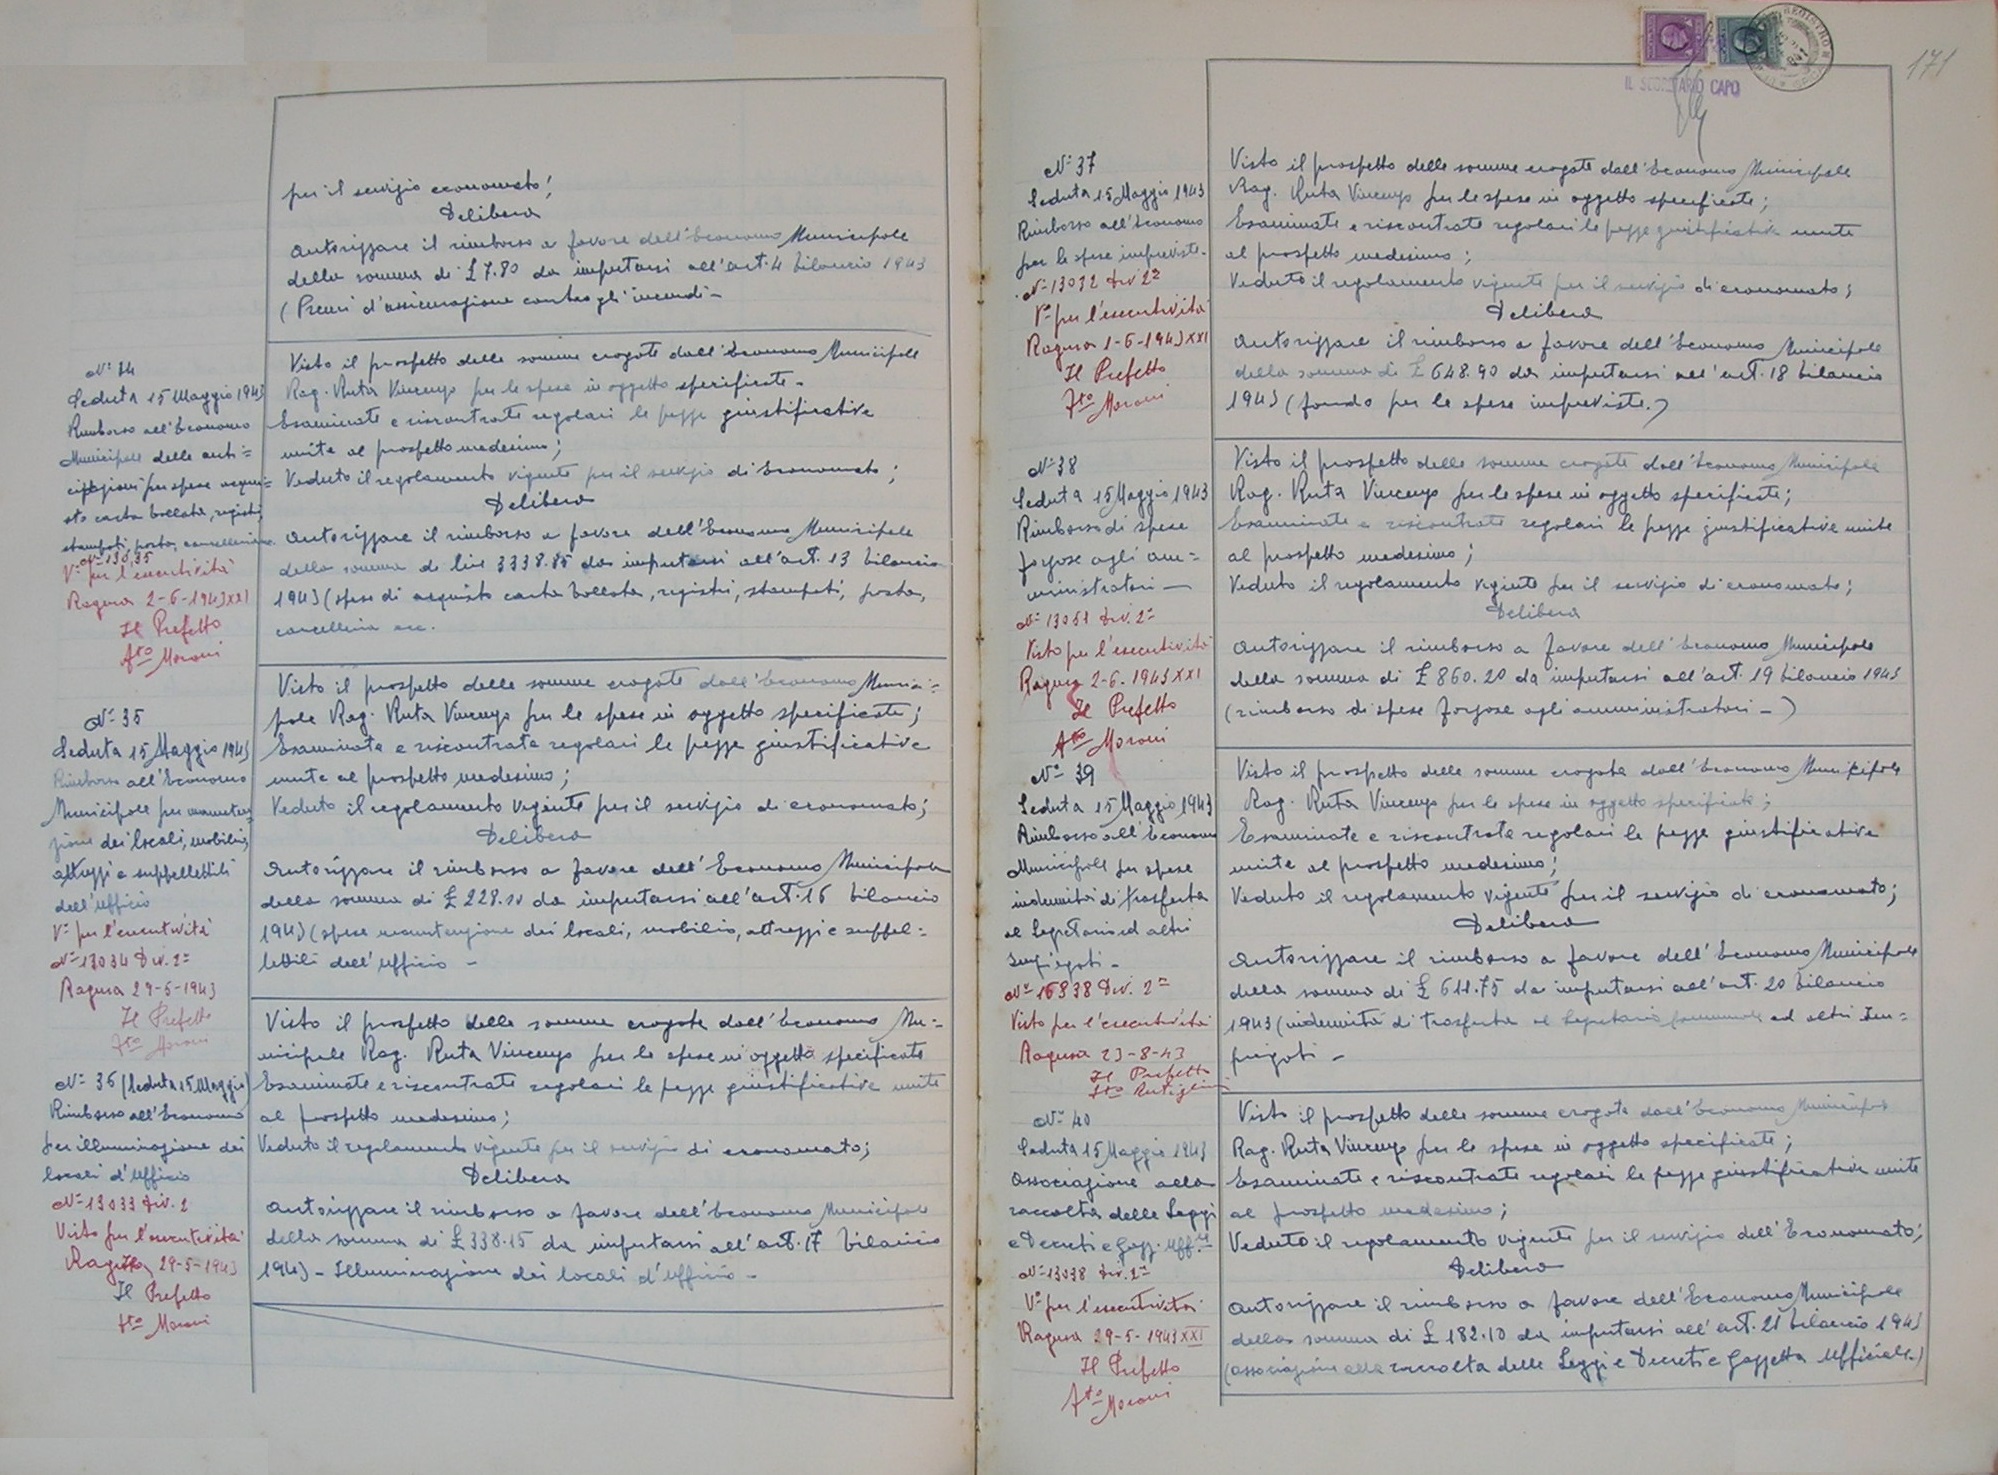 per il servizio economato;
Delibera
Autorizzare il rimborso a favore dell'Economo Municipale
della somma di £ 7.80 da imputarsi all'art. 4 bilancio 1943
(Premi d'assicurazione contro gli incendi -
N° 34
Seduta 15 Maggio 1943
Rimborso all'Economo
Municipale delle anti=
cipazioni per spese acqui=
sto carta bollata, registri,
stampati, posta, cancelleria
N° 13035
V° per l'esecutività
Ragusa 2-6-1943 XXI
Il Prefetto
Fto Moroni
Visto il prospetto delle somme erogate dall'Economo Municipale
Rag. Ruta Vincenzo per le spese in oggetto specificate -
Esaminate e riscontrate regolari le pezze giustificative
unite al prospetto medesimo;
Veduto il regolamento vigente per il servizio di Economato;
Delibera
Autorizzare il rimborso a favore dell'Economo Municipale
della somma di lire 3338.85 da imputarsi all'art. 13 bilancio
1943 (spese di acquisto carta bollata, registri, stampati, posta,
cancelleria ecc.
N° 35
Seduta 15 Maggio 1943
Rimborso all'Economo
Municipale per manuten=
zione dei locali, mobilio,
attrezzi e suppellettili
dell'ufficio
V° per l'esecutività
N° 13034 Div. 2ª
Ragusa 29-5-1943
Il Prefetto
Fto Moroni
Visto il prospetto delle somme erogate dall'Economo Munici=
pale Rag. Ruta Vincenzo per le spese in oggetto specificate;
Esaminate e riscontrate regolari le pezze giustificative
unite al prospetto medesimo;
Veduto il regolamento vigente per il servizio di economato;
Delibera
Autorizzare il rimborso a favore dell'Economo Municipale
della somma di £ 228.10 da imputarsi all'art. 16 bilancio
1943 (spese manutenzione dei locali, mobilio, attrezzi e suppel=
lettili dell'ufficio -
N° 36 (Seduta 15 Maggio)
Rimborso all'Economo
per illuminazione dei
locali d'Ufficio
N° 13033 Div. 2
Visto per l'esecutività
Ragusa 29-5-1943
Il Prefetto
Fto Moroni
Visto il prospetto delle somme erogate dall'Economo Mu=
nicipale Rag. Ruta Vincenzo per le spese in oggetto specificate
Esaminate e riscontrate regolari le pezze giustificative unite
al prospetto medesimo;
Veduto il regolamento vigente per il servizio di economato;
Delibera
Autorizzare il rimborso a favore dell'Economo Municipale
della somma di £ 338.15 da imputarsi all'art. 17 bilancio
1943 - Illuminazione dei locali d'Ufficio -
171
IL SEGRETARIO CAPO
N° 37
Seduta 15 Maggio 1943
Rimborso all'Economo
per le spese impreviste.
N° 13032 Div 2ª
V° per l'esecutività
Ragusa 1-6-1943 XXI
Il Prefetto
Fto Moroni
Visto il prospetto delle somme erogate dall'Economo Municipale
Rag. Ruta Vincenzo per le spese in oggetto specificate;
Esaminate e riscontrate regolari le pezze giustificative unite
al prospetto medesimo;
Veduto il regolamento vigente per il servizio di economato;
Delibera
Autorizzare il rimborso a favore dell'Economo Municipale
della somma di £ 648.90 da imputarsi all'art. 18 bilancio
1943 (fondo per le spese impreviste.)
N° 38
Seduta 15 Maggio 1943
Rimborso di spese
forzose agli am=
ministratori -
N° 13051 Div. 2ª
Visto per l'esecutività
Ragusa 2-6-1943 XXI
Il Prefetto
Fto Moroni
Visto il prospetto delle somme erogate dall'Economo Municipale
Rag. Ruta Vincenzo per le spese in oggetto specificate;
Esaminate e riscontrate regolari le pezze giustificative unite
al prospetto medesimo;
Veduto il regolamento vigente per il servizio di economato;
Delibera
Autorizzare il rimborso a favore dell'Economo Municipale
della somma di £ 860.20 da imputarsi all'art. 19 bilancio 1943
(rimborso di spese forzose agli amministratori -)
N° 39
Seduta 15 Maggio 1943
Rimborso all'Economo
Municipale per spese
indennità di trasferta
al Segretario ed altri
Impiegati -
N° 16838 Div. 2ª
Visto per l'esecutività
Ragusa 23-8-43
Il Prefetto
Fto
Visto il prospetto delle somme erogate dall'Economo Municipale
Rag. Ruta Vincenzo per le spese in oggetto specificate;
Esaminate e riscontrate regolari le pezze giustificative
unite al prospetto medesimo;
Veduto il regolamento vigente per il servizio di economato;
Delibera
Autorizzare il rimborso a favore dell'Economo Municipale
della somma di £ 611.75 da imputarsi all'art. 20 bilancio
1943 (indennità di trasferta al Segretario comunale ed altri Im=
piegati -
N° 40
Seduta 15 Maggio 1943
Associazione alla
raccolta delle Leggi
e Decreti e Gazz. Uff.le
N° 13038 Div. 2ª
V° per l'esecutività
Ragusa 29-5-1943 XXI
Il Prefetto
Fto Moroni
Visto il prospetto delle somme erogate dall'Economo Municipale
Rag. Ruta Vincenzo per le spese in oggetto specificate;
Esaminate e riscontrate regolari le pezze giustificative unite
al prospetto medesimo;
Veduto il regolamento vigente per il servizio dell'Economato;
Delibera
Autorizzare il rimborso a favore dell'Economo Municipale
della somma di £ 182.10 da imputarsi all'art. 21 bilancio 1943
(associazione alla raccolta delle Leggi e Decreti e Gazzetta Ufficiale.)